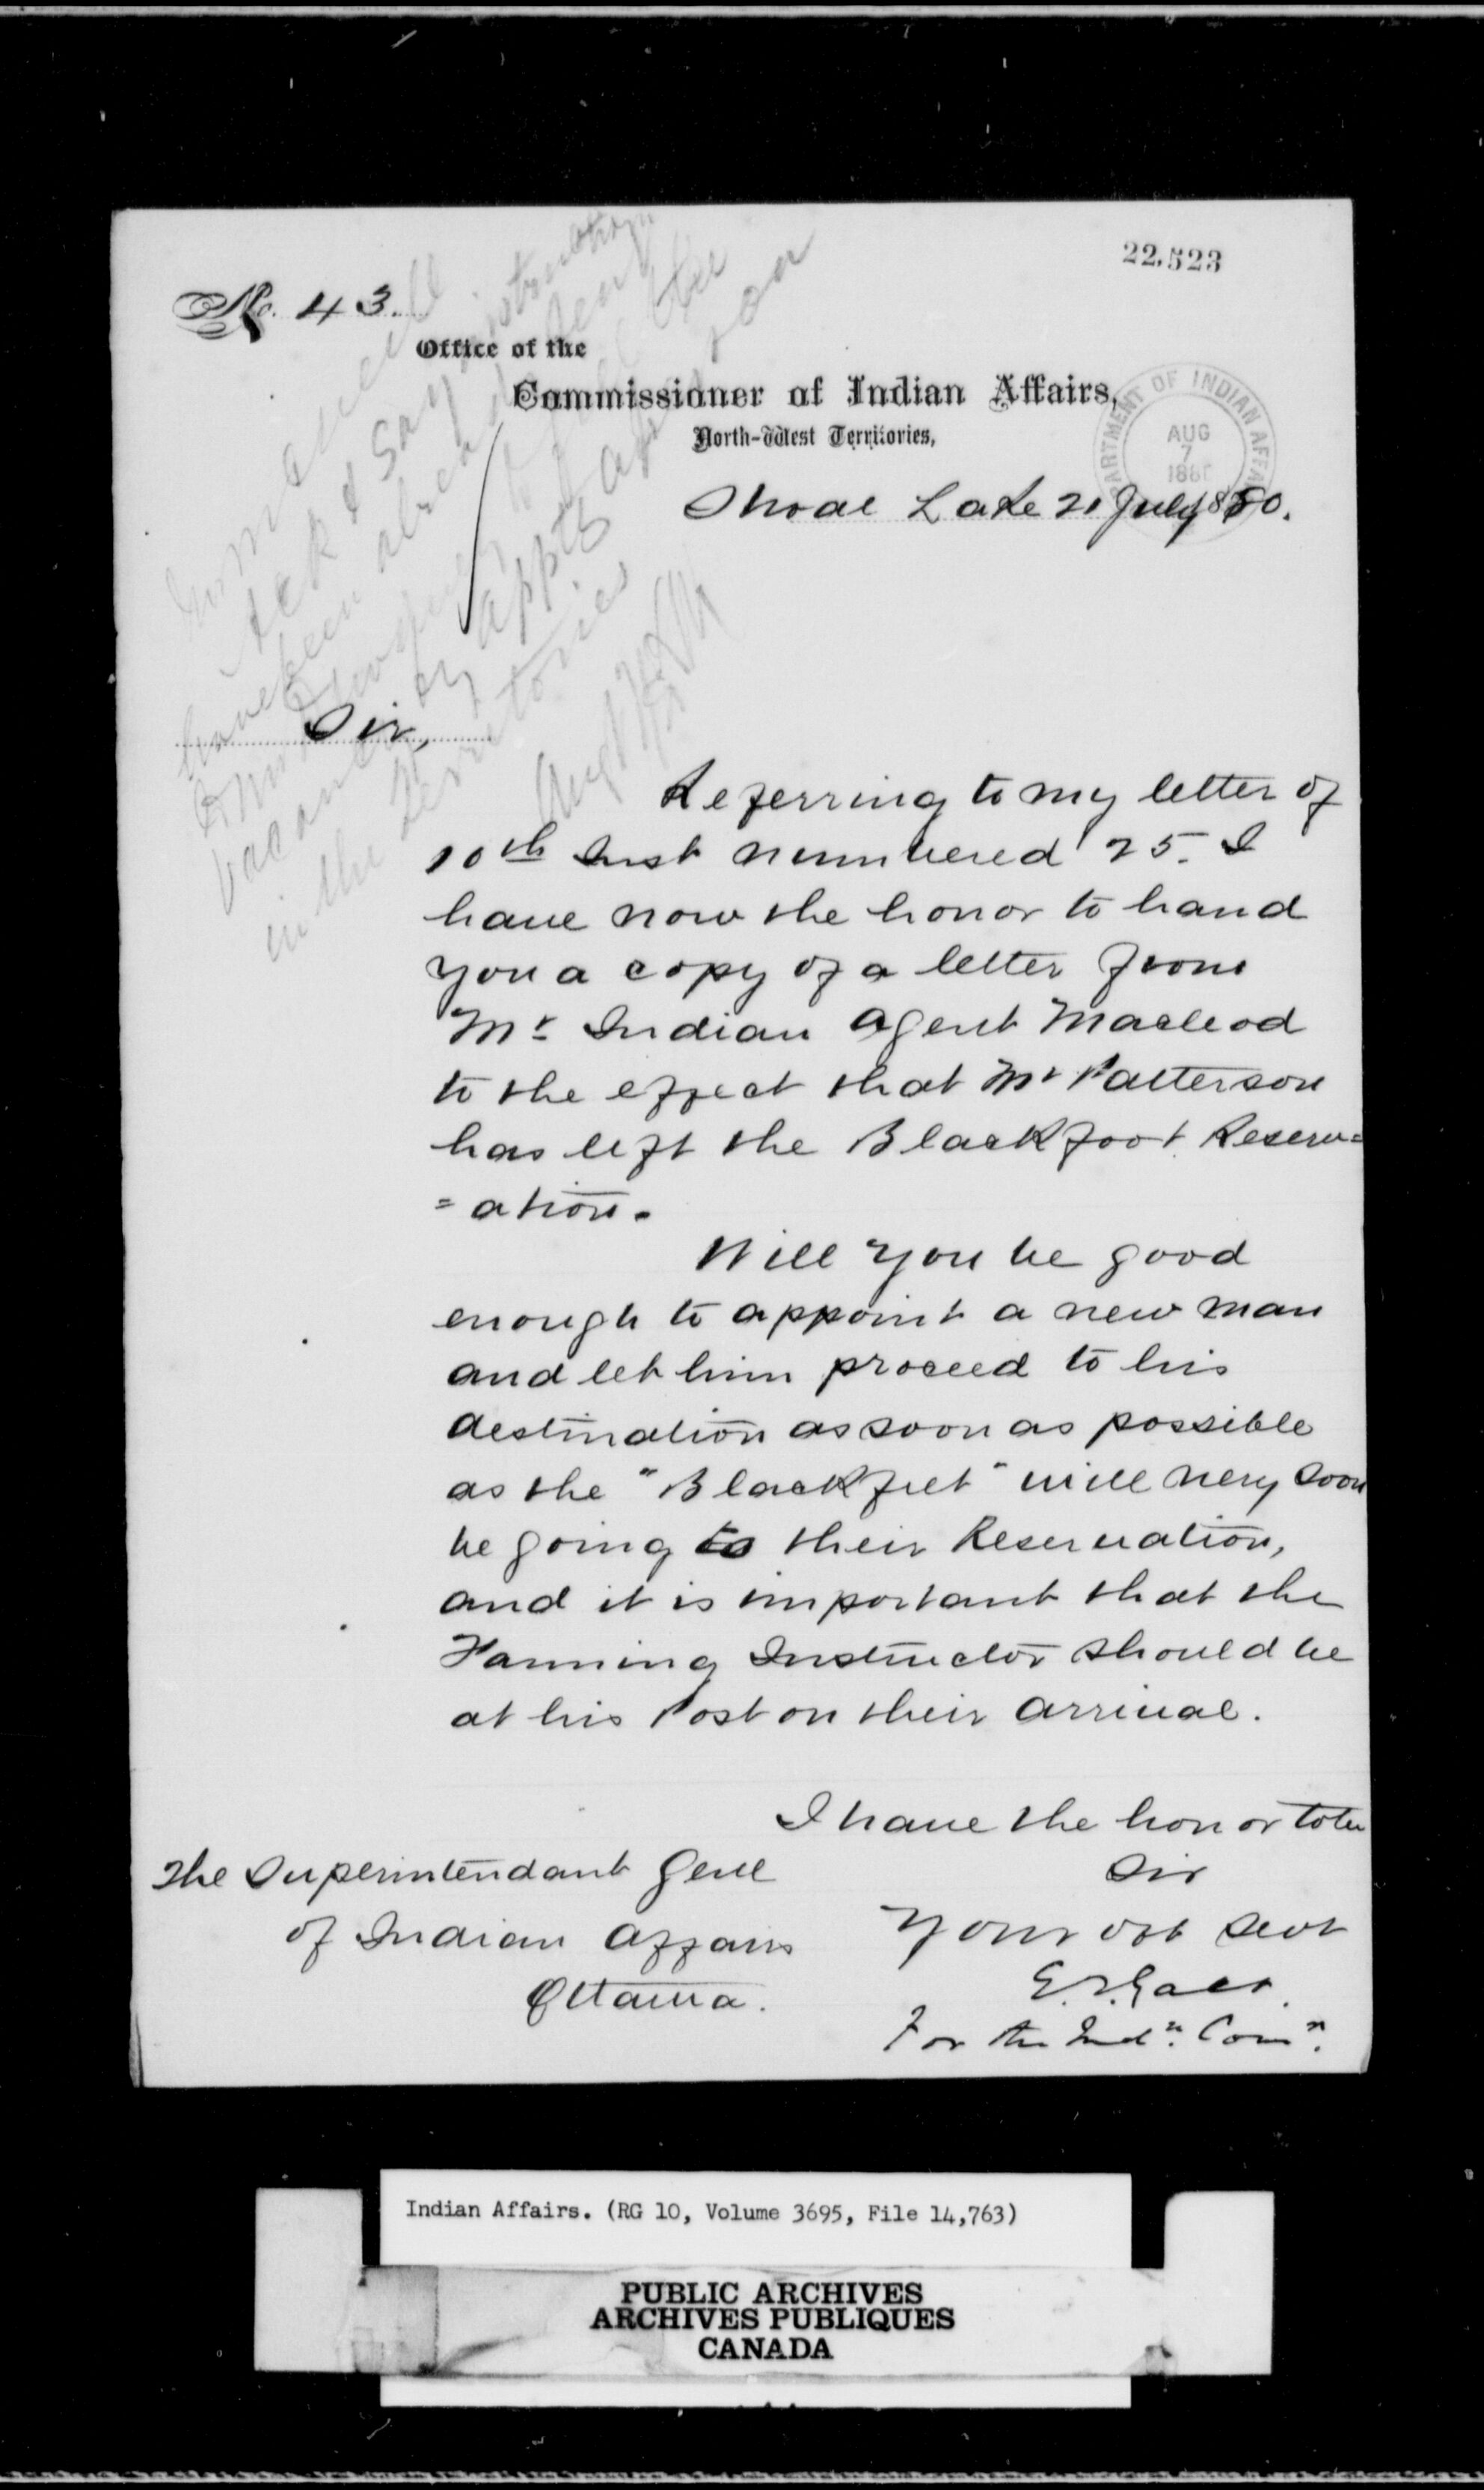 22,523
No. 43.
Office of the
Commissioner of Indian Affairs,
North-West Territories,
DEPARTMENT OF INDIAN AFFAIRS
AUG
7
1880
Shoal Lake 21 July 1880.
Sir,
Referring to my letter of
10th Inst numbered 25. I
have now the honor to hand
you a copy of a letter from
Mr Indian Agent Macleod
to the effect that Mr Patterson
has left the Blackfoot Reserv=
=ation.
Will you be good
enough to appoint a new man
and let him proceed to his
destination as soon as possible
as the "Blackfeet" will very soon
be going to their Reservation,
and it is important that the
Farming Instructor should be
at his Post on their arrival.
I have the honor to be
Sir
Your obt servt
E.T. Galt.
For the Indn. Comn.
The Superintendant Genl
of Indian Affairs
Ottawa.
ack & say instructions
have been already
vacancy appts
in the territories
Aug
Indian Affairs. (RG 10, Volume 3695, File 14,763)
PUBLIC ARCHIVES
ARCHIVES PUBLIQUES
CANADA